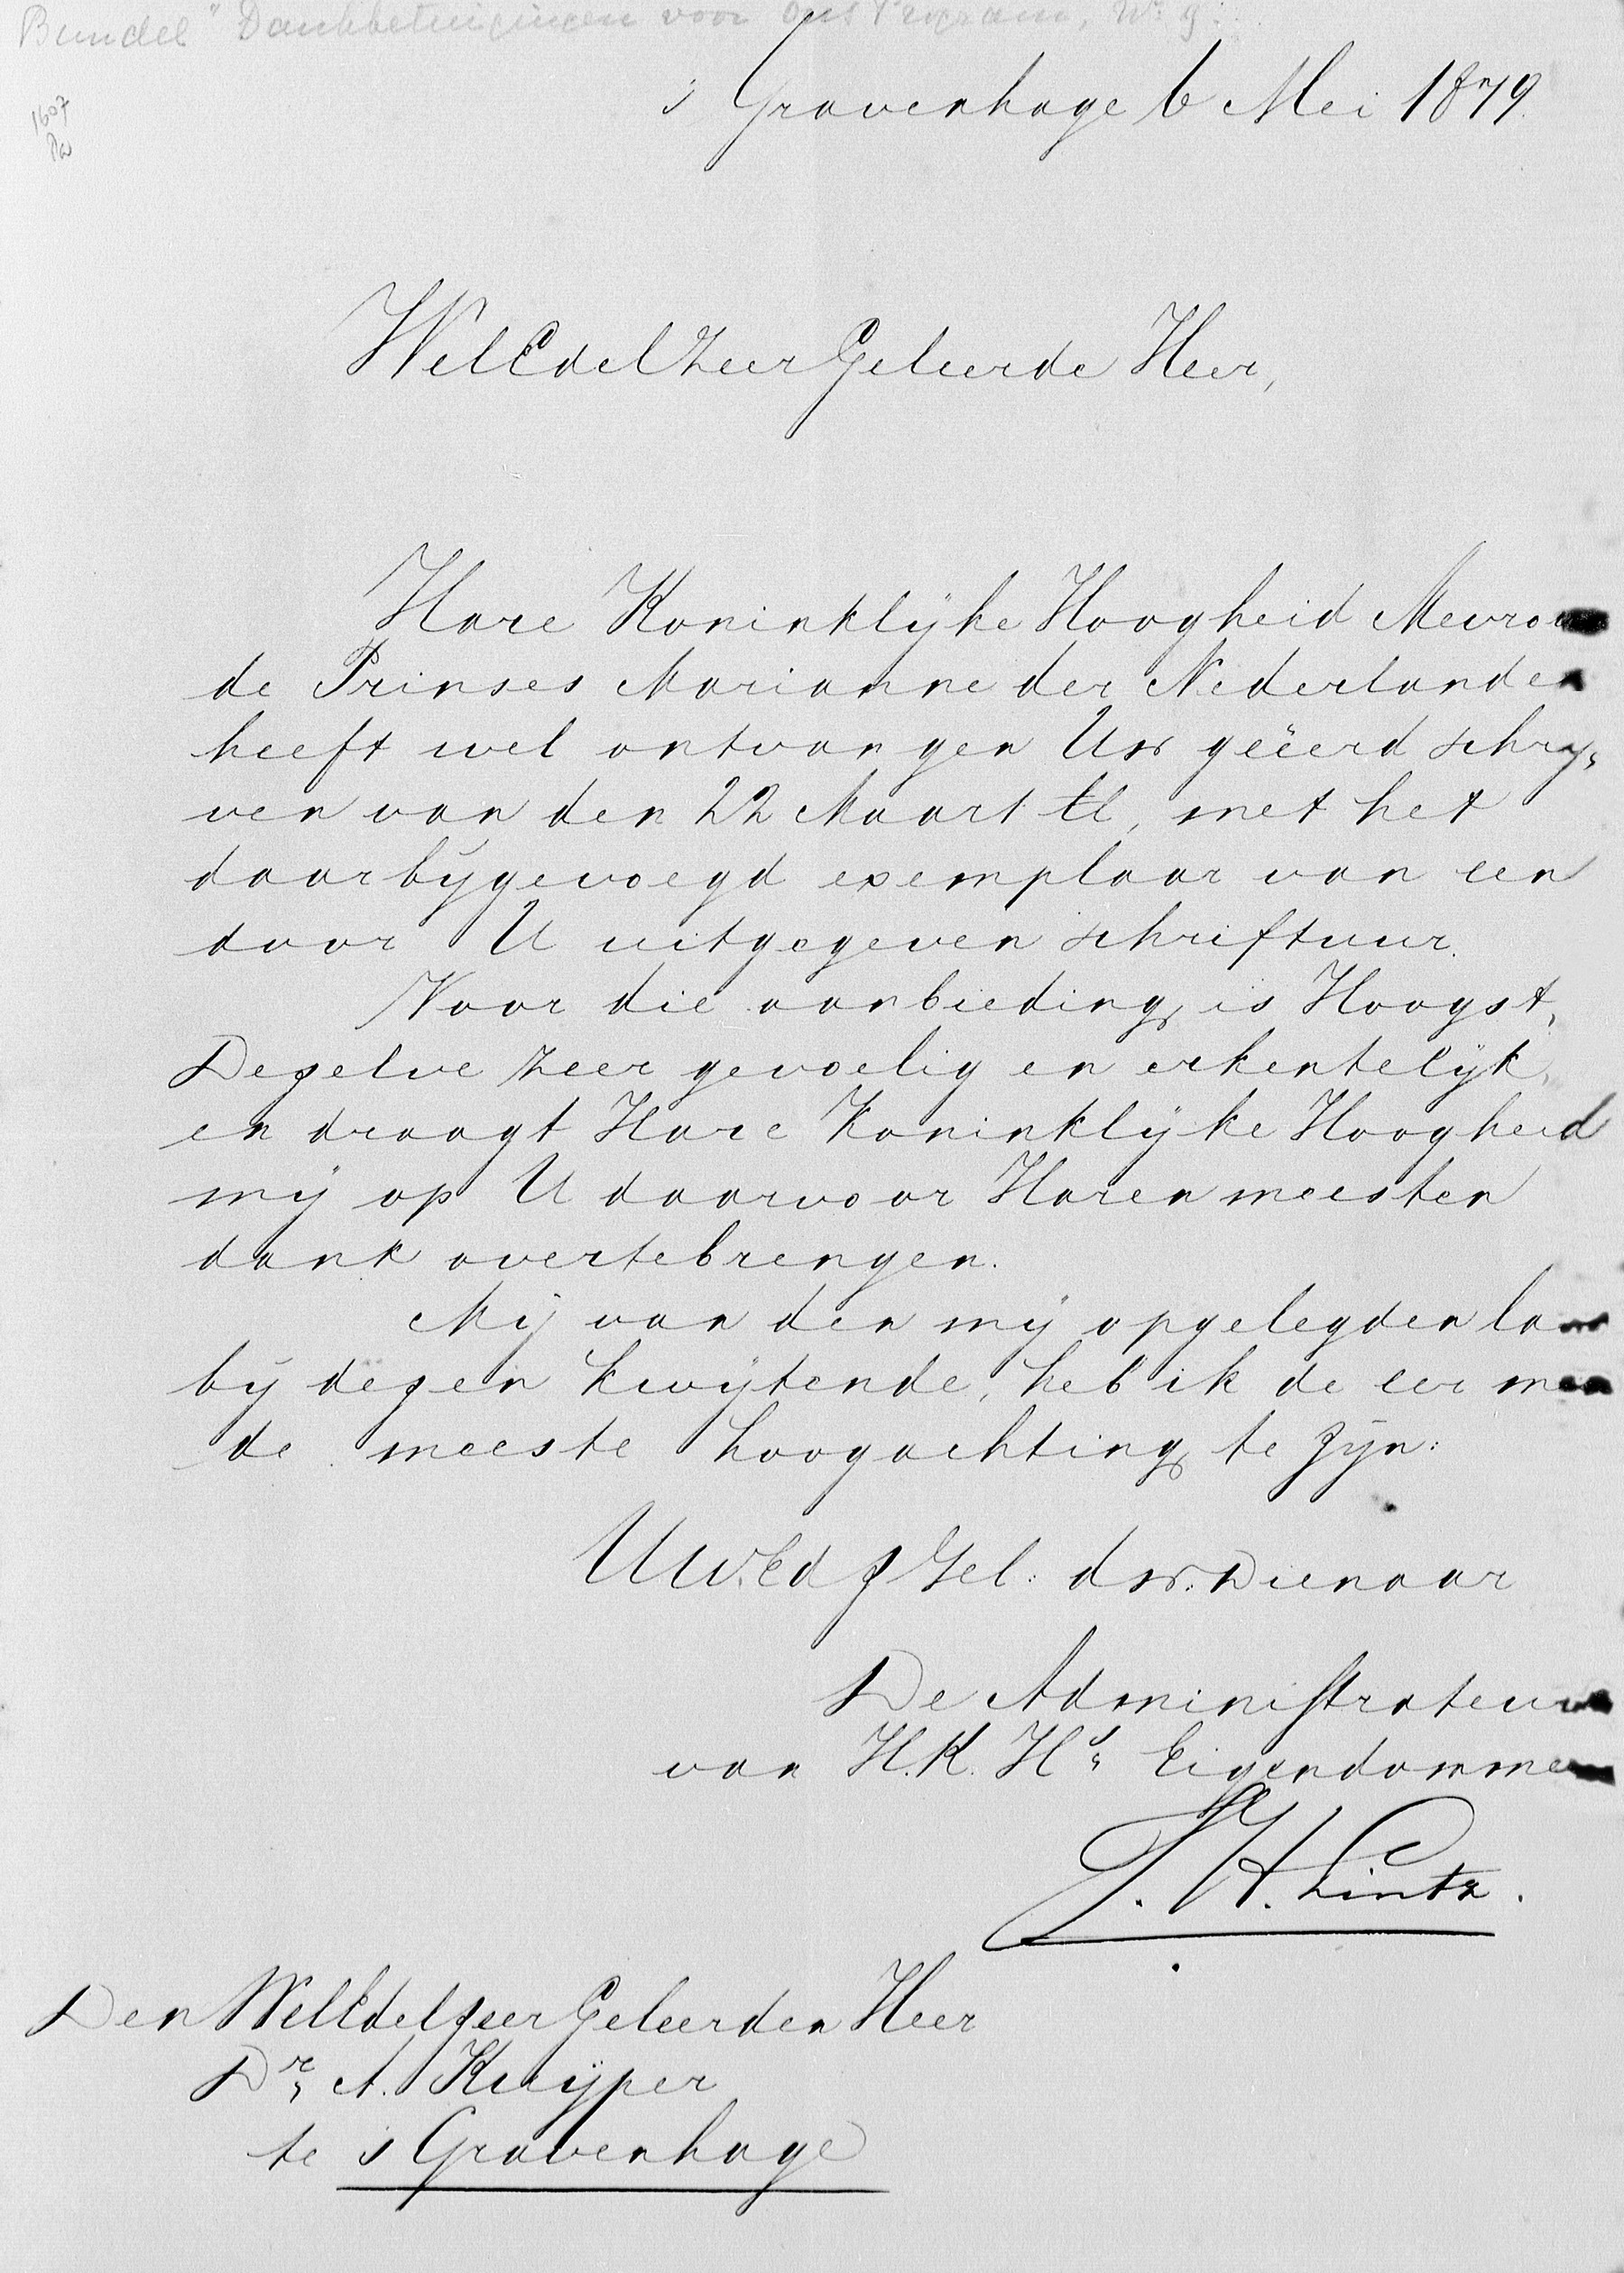 Bundel "Dankbetuigingen voor Ons Program, No 9.
1607
s Gravenhage 6 Mei 1879.
WelEdelZeerGeleerde Heer,
Hare Koninklijke Hoogheid Mevrouw
de Prinses Marianne der Nederlanden
heeft wel ontvangen Uw geëerd schrij„
ven van den 22 Maart ll, met het
daarbijgevoegd exemplaar van een
door U uitgegeven schriftuur.
Voor die aanbieding is Hoogst„
Dezelve zeer gevoelig en erkentelijk,
en draagt Hare Koninklijke Hoogheid
mij op U daarvoor Haren meesten
dank overtebrengen.
Mij van den mij opgelegden last
bij dezen kwijtende, heb ik de eer met
de meeste hoogachting te zijn:
UW.Ed Z Gel: dw. Dienaar
De Administrateur
van H.K. Hs. Eigendommen
J. H. Lintz.
Den WelEdelzeerGeleerden Heer
Dr. A. Kuijper
te s Gravenhage